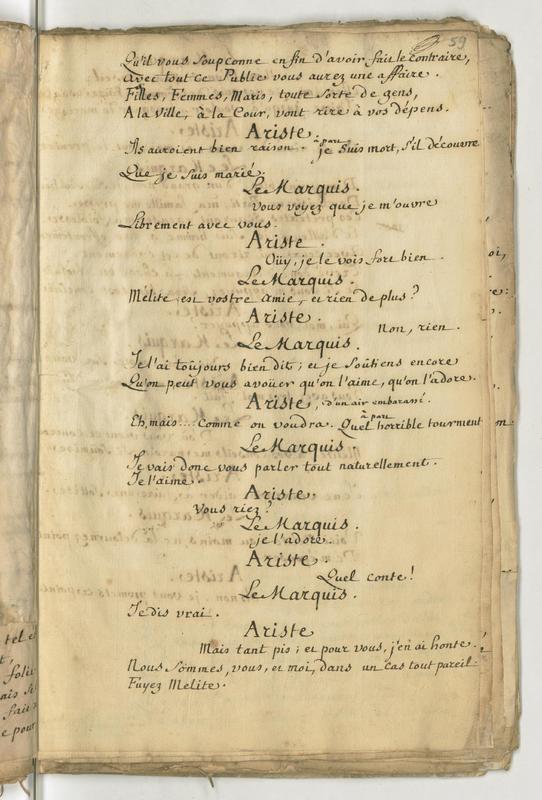 59
Qu'il vous soupçonne enfin d'avoir fait le contraire,
Avec tout ce Public vous aurez une affaire.
Filles, Femmes, Maris, toute sorte de gens,
A la Ville, à la Cour, vont rire à vos dépens.
Ariste.
Ils auroient bien raison. à part je suis mort, s'il découvre
Que je suis marié.
Le Marquis.
Vous voyez que je m'ouvre
Librement avec vous.
Ariste.
Oüy, je le vois fort bien.
Le Marquis.
Mélite est vostre amie, et rien de plus?
Ariste.
Non, rien.
Le Marquis.
Je l'ai toûjours bien dit; et je soûtiens encore
Qu'on peut vous avoüer qu'on l'aime, qu'on l'adore.
Ariste, d'un air embarassé.
Eh, mais.... Comme on voudra. à part Quel horrible tourment
Le Marquis.
Je vais donc vous parler tout naturellement.
Je l'aime.
Ariste.
Vous riez?
Le Marquis.
je l'adore.
Ariste.
Quel conte!
Le Marquis.
Je dis vrai.
Ariste
Mais tant pis; et pour vous, j'en ai honte.
Nous sommes, vous, et moi, dans un cas tout pareil:
Fuyez Melite.